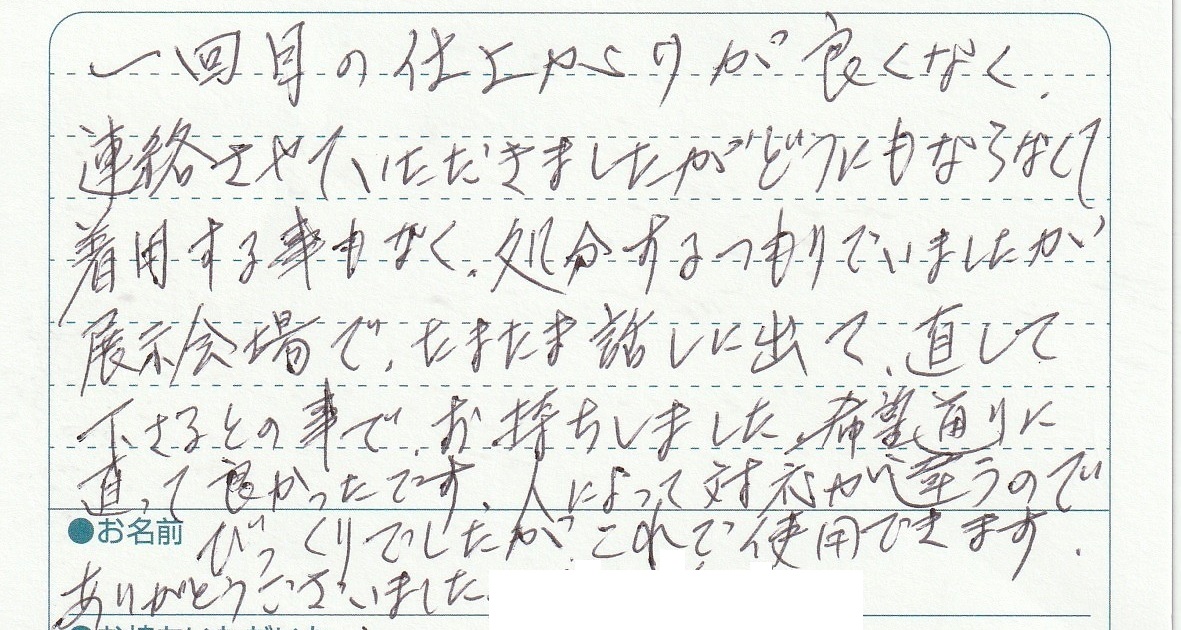 一回目の仕上がりが良くなく、
連絡させていただきましたがどうにもならなくて
着用する事もなく、処分するつもりでいましたが
展示会場で、たまたま話しに出て、直して
下さるとの事で、お持ちしました。希望通りに
直って良かったです。人によって対応が違うので
●お名前 びっくりでしたが、これで使用できます。
ありがとうございました。